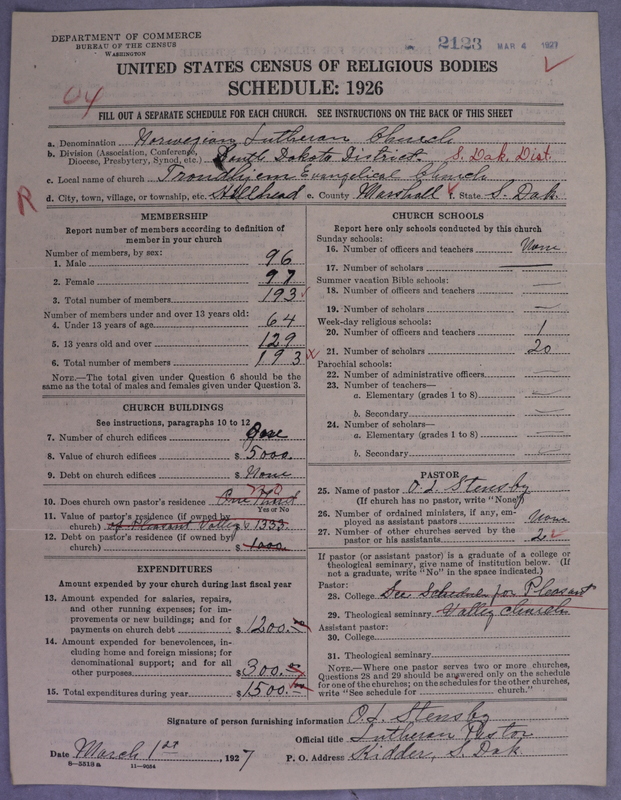 DEPARTMENT OF COMMERCE
BUREAU OF THE CENSUS
WASHINGTON
2123 MAR 4 1927
UNITED STATES CENSUS OF RELIGIOUS BODIES
SCHEDULE: 1926
FILL OUT A SEPARATE SCHEDULE FOR EACH CHURCH. SEE INSTRUCTIONS ON THE BACK OF THIS SHEET
a. Denomination Norwegian Lutheran Church
b. Division (Association, Conference, Diocese, Presbytery, Synod, etc.) South Dakota District S. Dak. Dist.
c. Local name of church Trondhjem Evangelical Church
d. City, town, village, or township, etc. Hillhead e. County Marshall f. State S. Dak.
R
MEMBERSHIP
Report number of members according to definition of
member in your church
Number of members, by sex:
1. Male 96
2. Female 97
3. Total number of members 193
Number of members under and over 13 years old:
4. Under 13 years of age 64
5. 13 years old and over 129
6. Total number of members 193
NOTE.—The total given under Question 6 should be the
same as the total of males and females given under Question 3.
CHURCH BUILDINGS
See instructions, paragraphs 10 to 12
7. Number of church edifices One
8. Value of church edifices $ 5000.
9. Debt on church edifices $ None
10. Does church own pastor's residence One Third No
Yes or No
11. Value of pastor's residence (if owned by
church) of Pleasant Valley $ 1333.
12. Debt on pastor's residence (if owned by
church) $ 1000.
EXPENDITURES
Amount expended by your church during last fiscal year
13. Amount expended for salaries, repairs,
and other running expenses; for im-
provements or new buildings; and for
payments on church debt $ 1200.
14. Amount expended for benevolences, in-
cluding home and foreign missions; for
denominational support; and for all
other purposes $ 300.
15. Total expenditures during year $ 1500.
CHURCH SCHOOLS
Report here only schools conducted by this church
Sunday schools:
16. Number of officers and teachers None
17. Number of scholars
Summer vacation Bible schools:
18. Number of officers and teachers
19. Number of scholars
Week-day religious schools:
20. Number of officers and teachers 1
21. Number of scholars 20
Parochial schools:
22. Number of administrative officers
23. Number of teachers—
a. Elementary (grades 1 to 8)
b. Secondary
24. Number of scholars—
a. Elementary (grades 1 to 8)
b. Secondary
PASTOR
25. Name of pastor O. L. Stensby
(If church has no pastor, write "None")
26. Number of ordained ministers, if any, em-
ployed as assistant pastors None
27. Number of other churches served by the
pastor or his assistants 2
If pastor (or assistant pastor) is a graduate of a college or
theological seminary, give name of institution below. (If
not a graduate, write "No" in the space indicated.)
Pastor:
28. College See Schedule for Pleasant
29. Theological seminary Valley church
Assistant pastor:
30. College
31. Theological seminary
NOTE.—Where one pastor serves two or more churches,
Questions 28 and 29 should be answered only on the schedule
for one of the churches; on the schedules for the other churches,
write "See schedule for church."
Signature of person furnishing information O. L. Stensby
Official title Lutheran Pastor
Date March 1st, 1927 P. O. Address Kidder, S. Dak.
8-5518a 11-9024